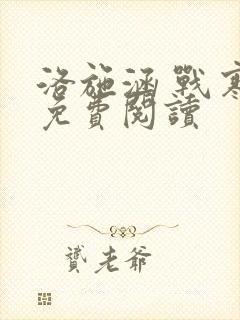 洛施涵戰寒
免費閱讀
贊老爺